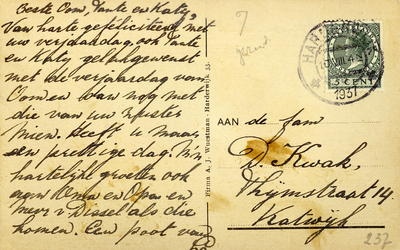 Beste Oom, Tante en Katy,
Van harte gefeliciteerd met
uw verjaardag, ook Tante
en Katy gelukgewenst
met de verjaardag van
Oom en dan nog met
die van uw zuster
Mien. Heeft u maar
een prettige dag. N.n
hartelijke groeten ook
aan Oma en Opa en
mevr v Dissel als die
komen. Een poot van
Firma A. J. Wuestman - Harderwijk 35
7
HARDERWIJK
1931
5 CENT
AAN de fam
D. Kwak,
Thijmstraat 14.
Katwijk
237